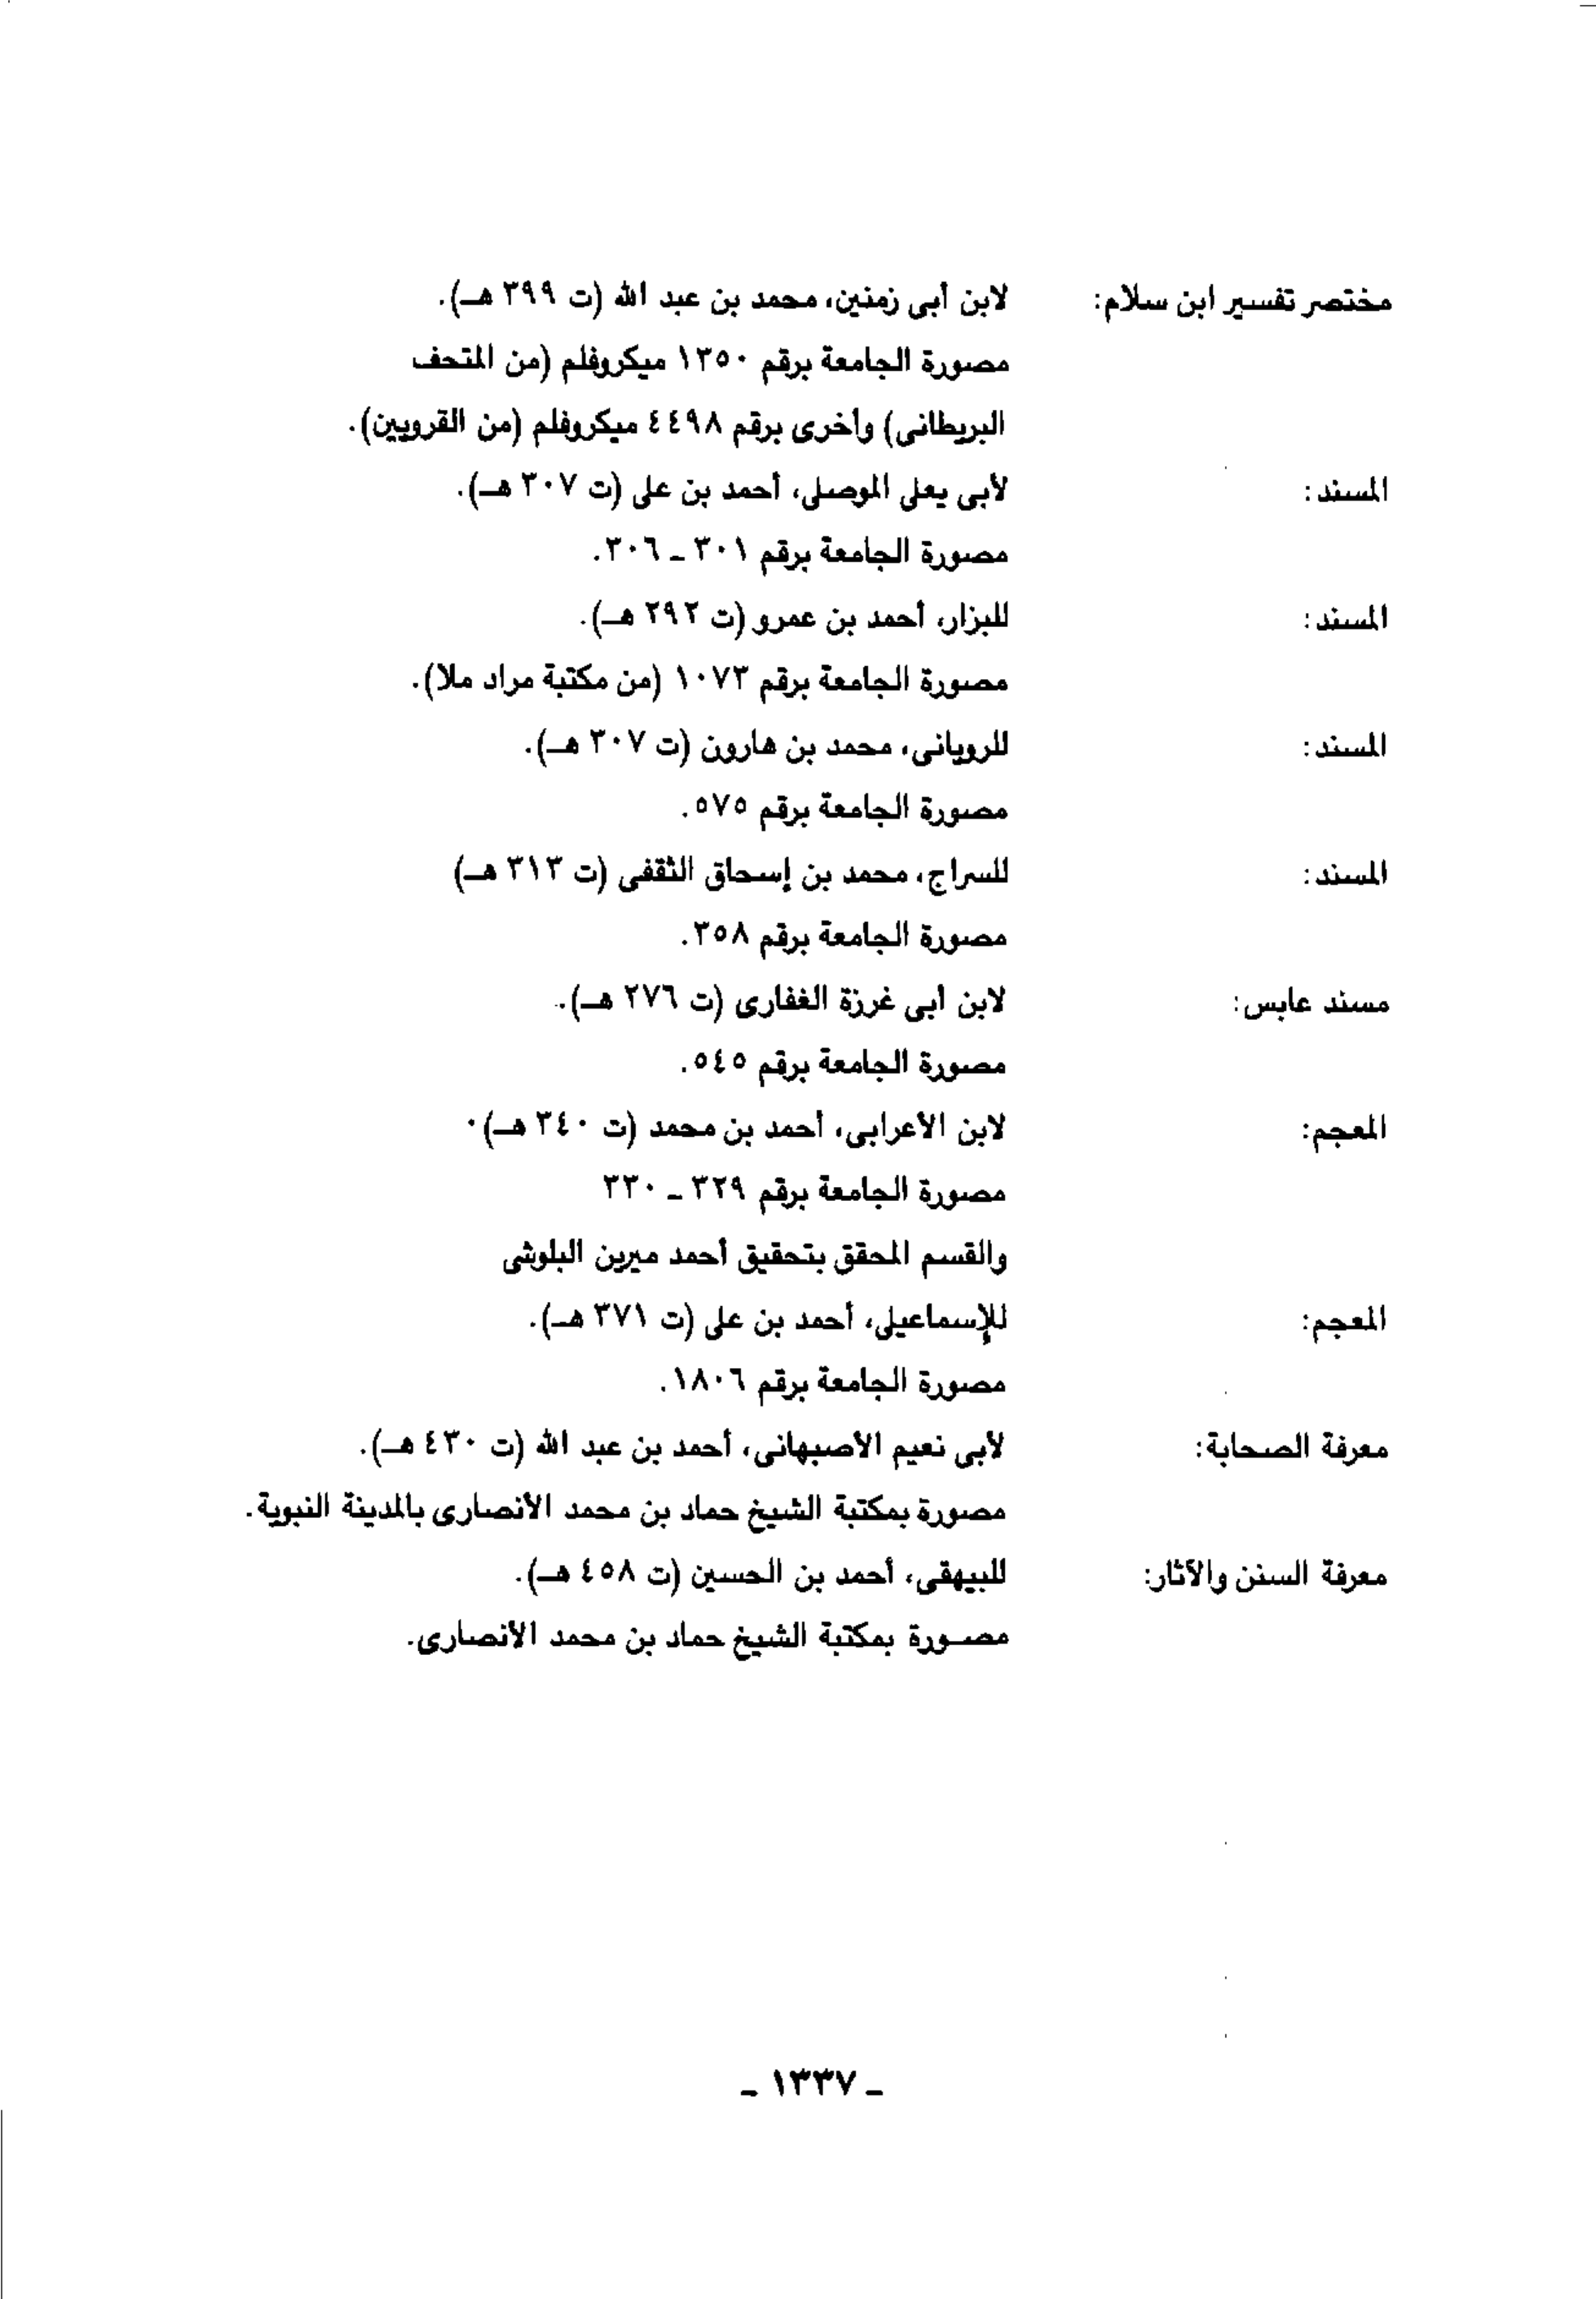 مختصر تفسير ابن سلام: لابن أبى زمنين، محمد بن عبد الله (ت ٣٩٩ هـ).
مصورة الجامعة برقم ١٣٥٠ ميكروفلم (من المتحف
البريطانى) وأخرى برقم ٤٤٩٨ ميكروفلم (من القرويين).
المسند: لأبى يعلى الموصلى، أحمد بن على (ت ٣٠٧ هـ).
مصورة الجامعة برقم ٣٠١ ـ ٣٠٦.
المسند: للبزار، أحمد بن عمرو (ت ٢٩٢ هـ).
مصورة الجامعة برقم ١٠٧٣ (من مكتبة مراد ملا).
المسند: للرويانى، محمد بن هارون (ت ٣٠٧ هـ).
مصورة الجامعة برقم ٥٧٥.
المسند: للسراج، محمد بن إسحاق الثقفى (ت ٣١٣ هـ)
مصورة الجامعة برقم ٣٥٨.
مسند عابس: لابن أبى غرزة الغفارى (ت ٢٧٦ هـ).
مصورة الجامعة برقم ٥٤٥.
المعجم: لابن الأعرابى، أحمد بن محمد (ت ٣٤٠ هـ).
مصورة الجامعة برقم ٣٢٩ ـ ٣٣٠
والقسم المحقق بتحقيق أحمد ميرين البلوشى
المعجم: للإسماعيلى، أحمد بن على (ت ٣٧١ هـ).
مصورة الجامعة برقم ١٨٠٦.
معرفة الصحابة: لأبى نعيم الأصبهانى، أحمد بن عبد الله (ت ٤٣٠ هـ).
مصورة بمكتبة الشيخ حماد بن محمد الأنصارى بالمدينة النبوية.
معرفة السنن والآثار: للبيهقى، أحمد بن الحسين (ت ٤٥٨ هـ).
مصورة بمكتبة الشيخ حماد بن محمد الأنصارى.
ـ ١٣٣٧ ـ